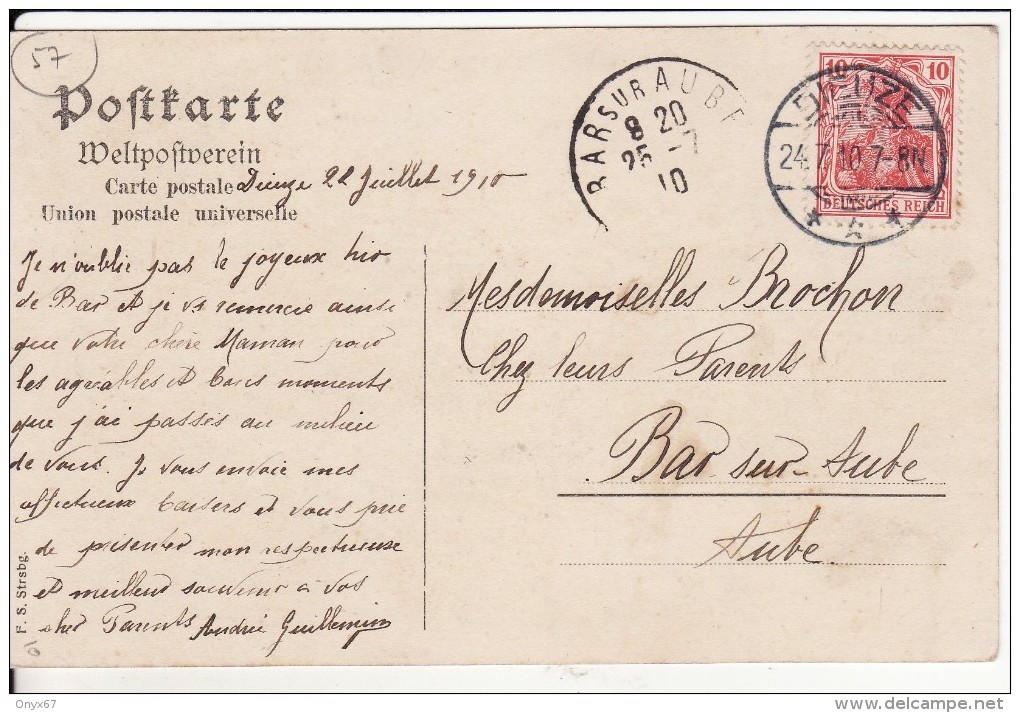 57
Postkarte
Weltpostverein
Carte postale
Union postale universelle
Dieuze 22 Juillet 1910
Je n'oublie pas le joyeux trio
de Bar et je vs remercie ainsi
que votre chère Maman pour
les agréables et bons moments
que j'ai passés au milieu
de vous. Je vous envoie mes
affectueux baisers et vous prie
de présenter mon respectueux
et meilleur souvenir à vos
cher Parents André Guillemin
F. S. Strsbg.
BAR SUR AUBE
8 20
25 -7
10
10 10
DEUTSCHES REICH
DIEUZE
24.7.10.7-8N
Mesdemoiselles Brochon
Chez leurs Parents
Bar sur-Aube
Aube
Onyx67